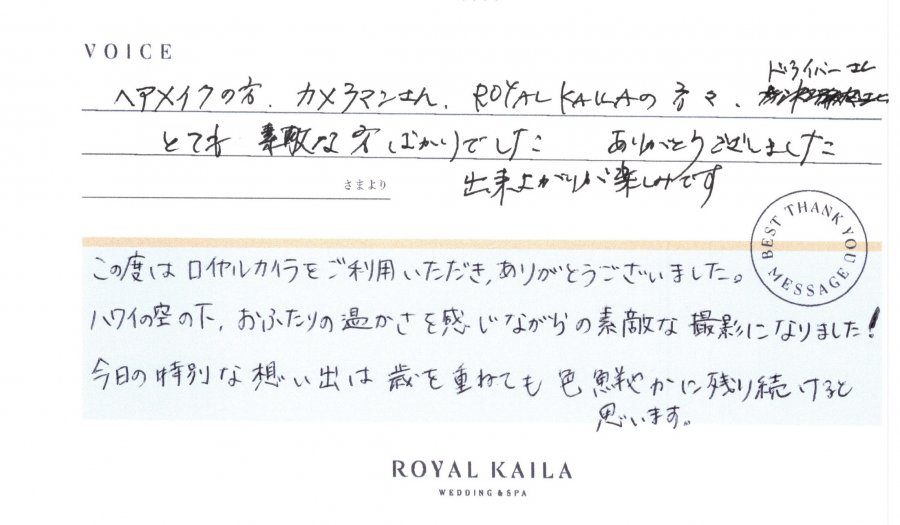 VOICE
ドライバーさん
ヘアメイクの方、カメラマンさん、ROYAL KAILAの方々、
とても素敵な方ばかりでした ありがとうございました
さまより
出来上がりが楽しみです
BEST THANK YOU MESSAGE
この度はロイヤルカイラをご利用いただき、ありがとうございました。
ハワイの空の下、おふたりの温かさを感じながらの素敵な撮影になりました!
今日の特別な想い出は歳を重ねても色鮮やかに残り続けると
思います。
ROYAL KAILA
WEDDING & SPA